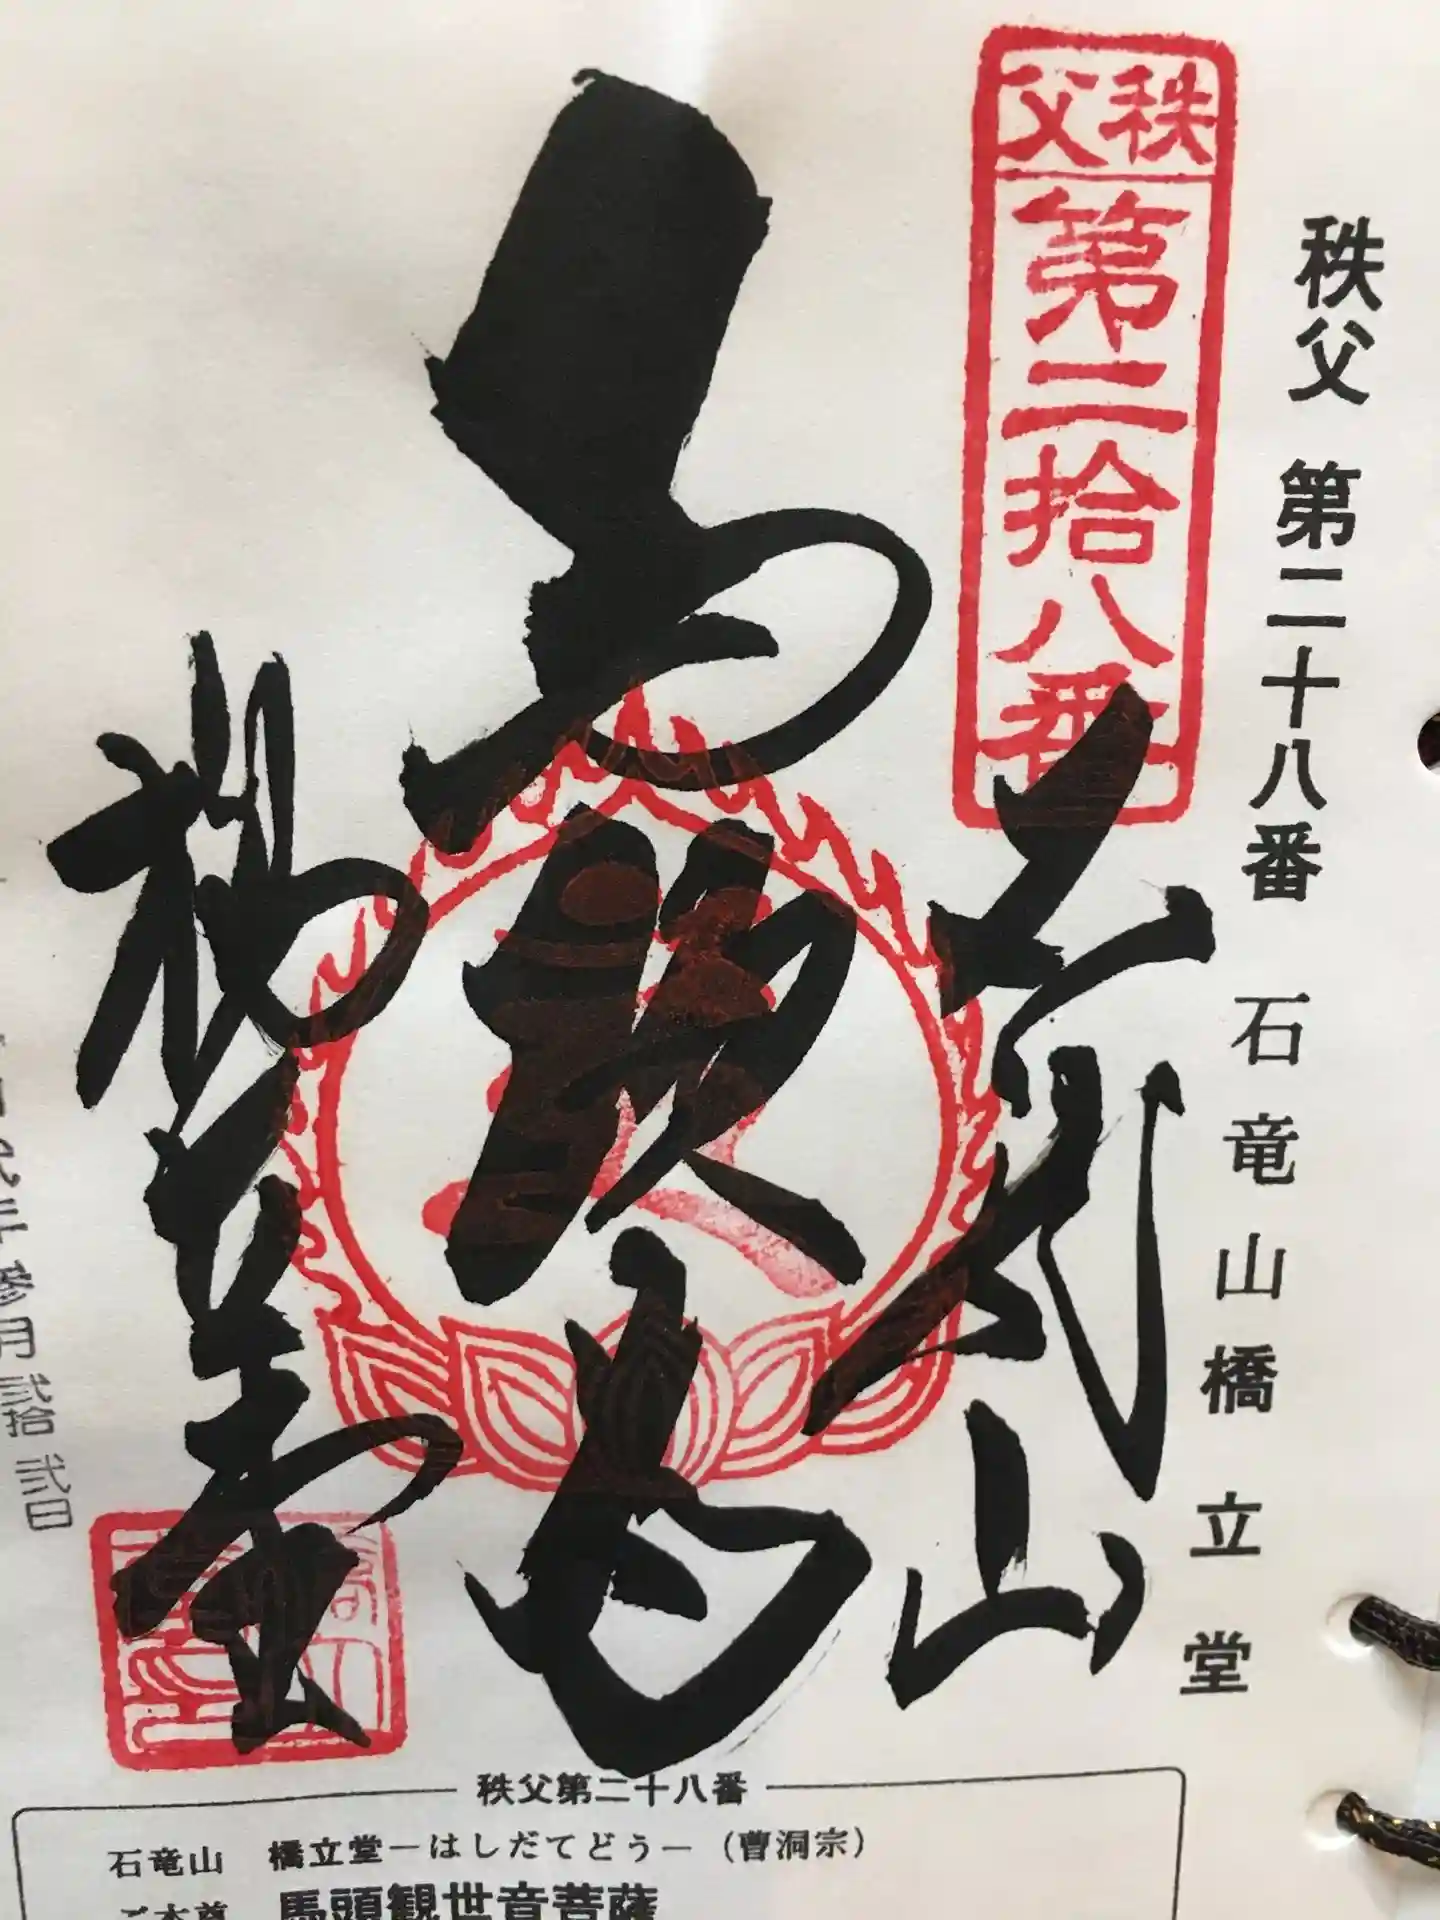 秩父 第二十八番 石竜山橋立堂
秩父
第二拾八番
石龍山
馬頭尊
橋立堂
参月 弐拾弐日
秩父第二十八番
石竜山 橋立堂―はしだてどう―(曹洞宗)
ご本尊 馬頭観世音菩薩